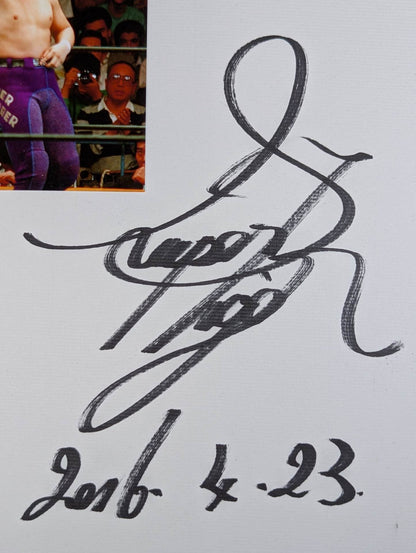 ER
GER
Super
Tiger
2016. 4. 23.